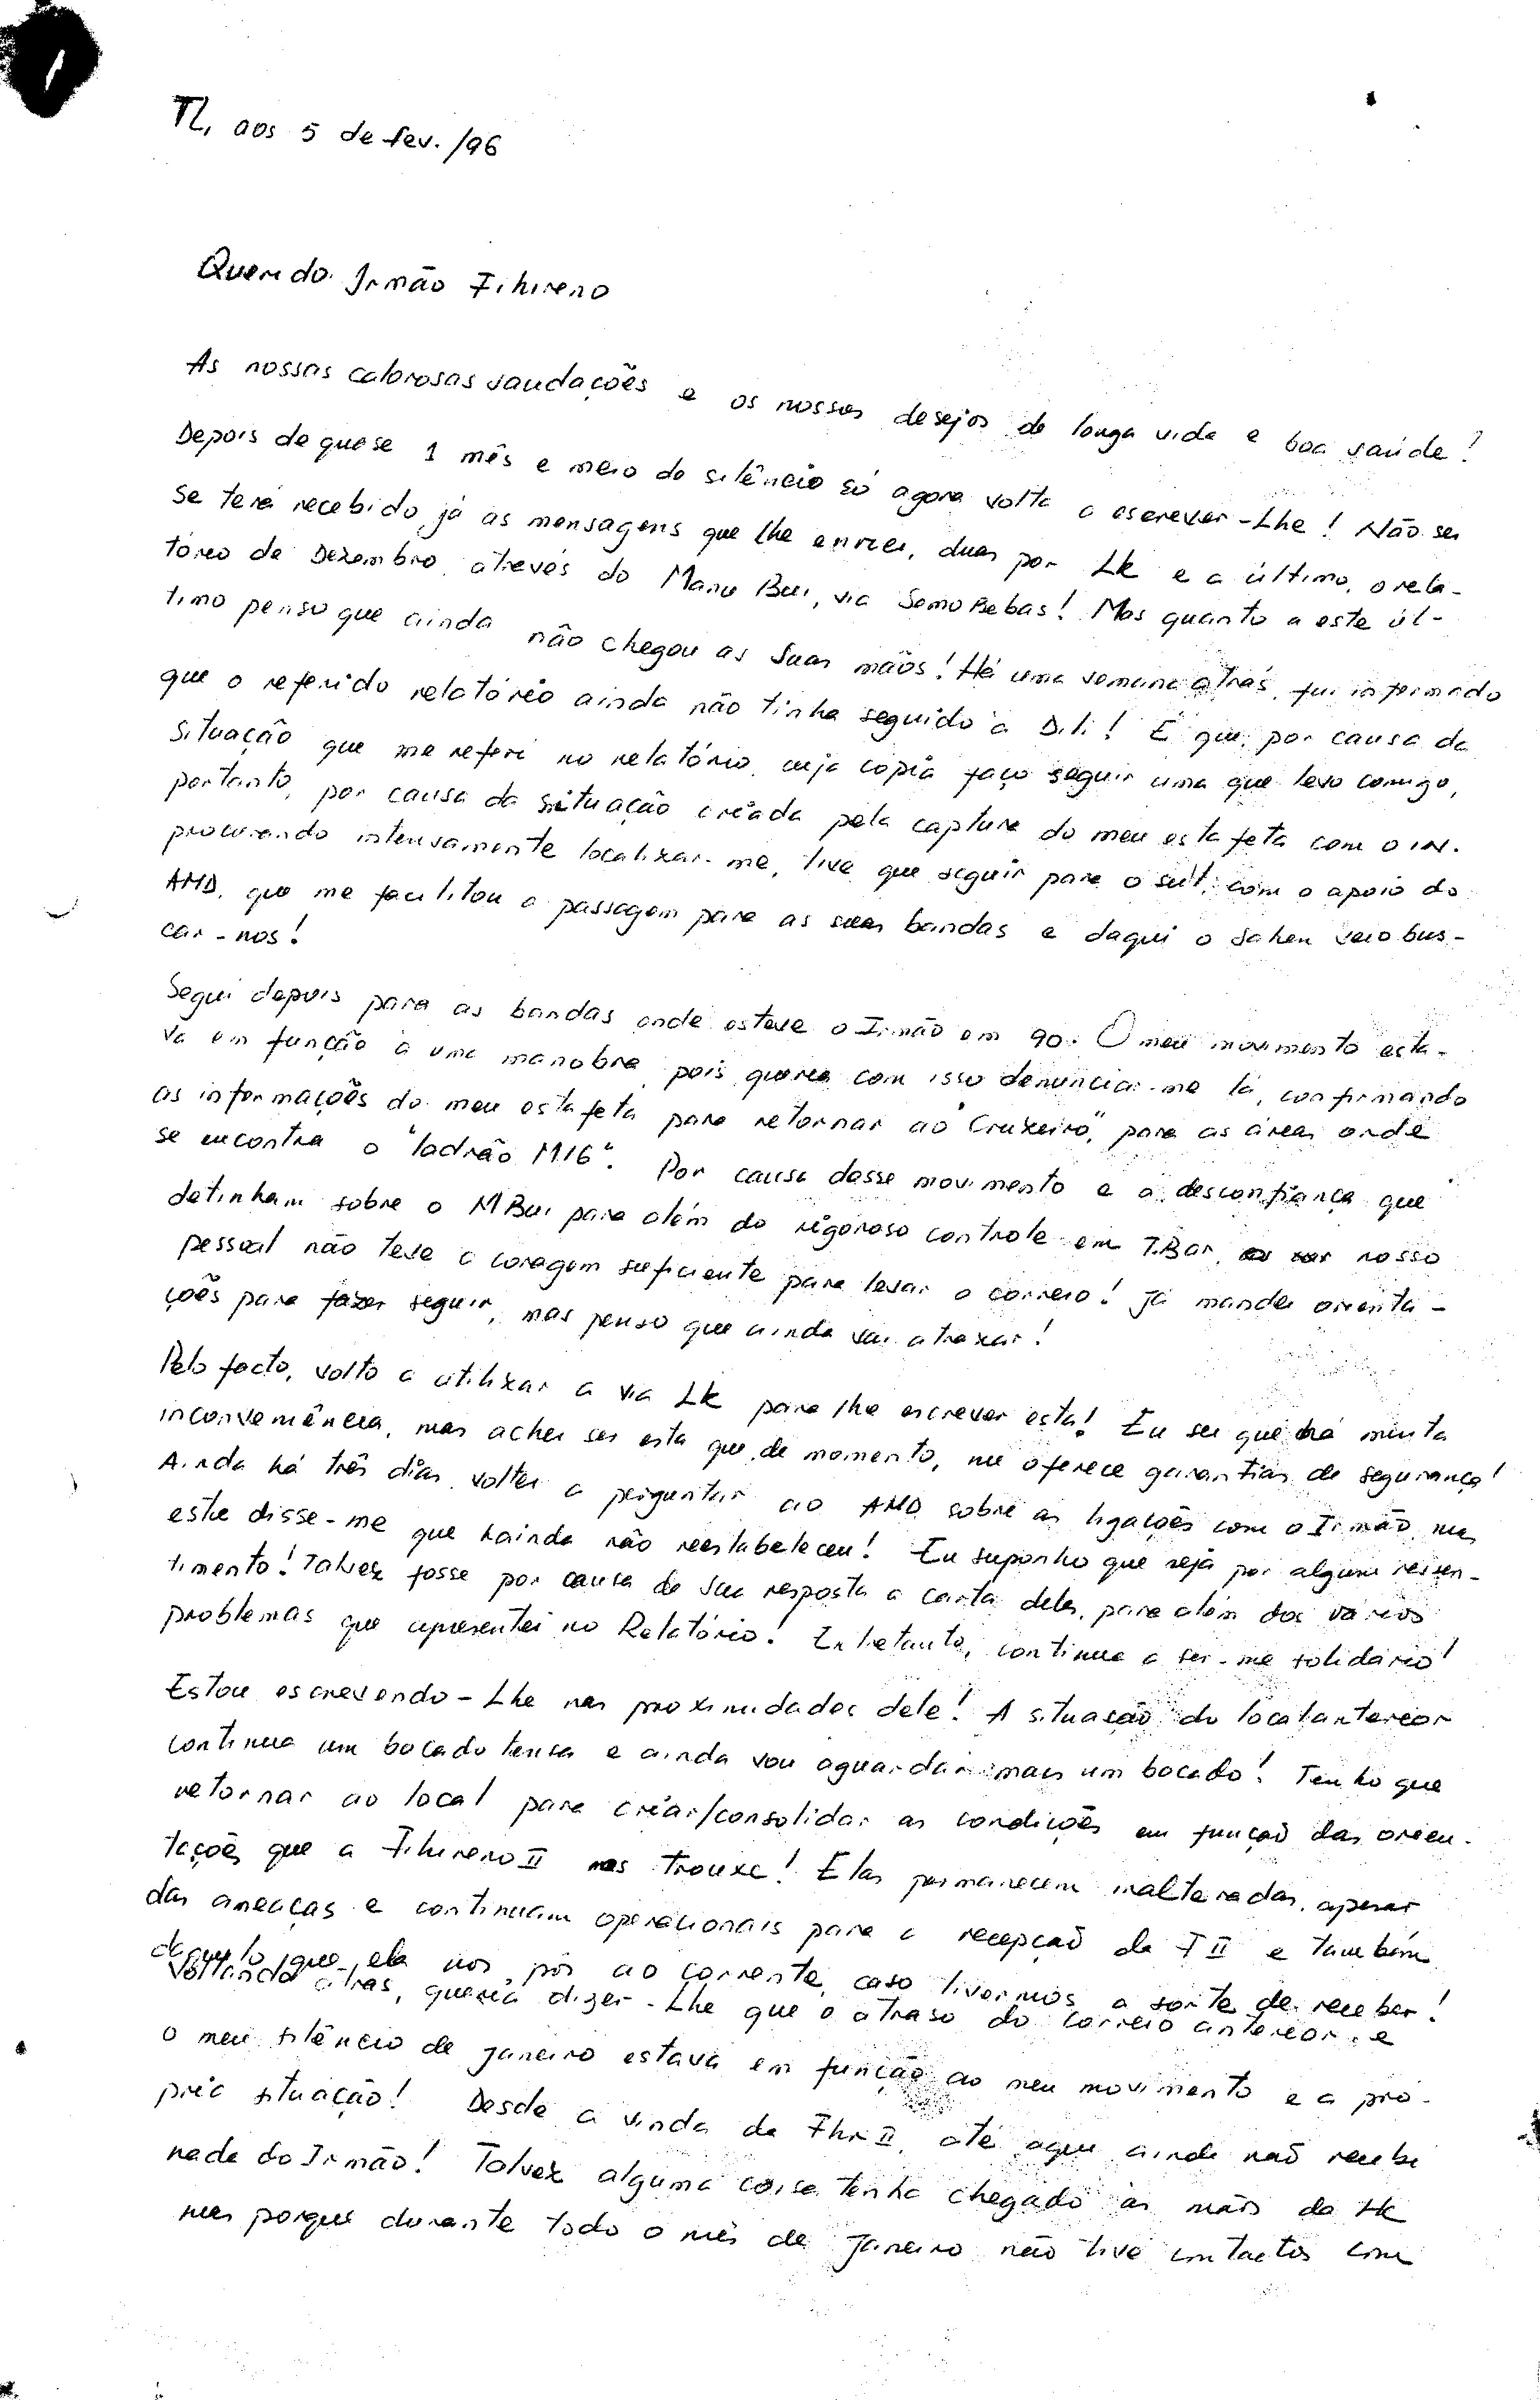 TL, aos 5 de fev. /96
Querido Irmão Fihireno
As nossas calorosas saudações e os nossos desejos de longa vida e boa saúde!
Depois de quase 1 mês e meio de silêncio só agora volto a escrever-Lhe! Não sei
se terá recebido já as mensagens que lhe enviei, duas por Lk e a último, o rela-
tório de Dezembro, através do Manu Bui, via SomoBebas! Mas quanto a este úl-
timo penso que ainda não chegou as suas mãos! Há uma semana atrás, fui informado
que o referido relatório ainda não tinha seguido à Dili! É que, por causa da
situação que me referi no relatório, cuja cópia faço seguir uma que levo comigo,
portanto, por causa da situação criada pela captura do meu estafeta com o IN.
procurando intensamente localizar-me, tive que seguir para o sul, com o apoio do
AMD, que me facilitou a passagem para as suas bandas e daqui o Sahen veio bus-
car-nos!
Segui depois para as bandas onde esteve o Irmão em 90. O meu movimento esta-
va em função à uma manobra, pois queria com isso denunciar-me lá, confirmando
as informações do meu estafeta para retornar ao "Cruzeiro", para as áreas onde
se encontra o "ladrão M16". Por causa desse movimento e a desconfiança que
detinham sobre o MBui para além do rigoroso controle em T.Bar, nosso
pessoal não teve a coragem suficiente para levar o correio! Já mandei orienta-
ções para fazer seguir, mas penso que ainda vai atrazar!
Pelo facto, volto a utilizar a via Lk para lhe escrever esta! Eu sei que há muita
inconveniência, mas achei ser esta que, de momento, me oferece garantias de segurança!
Ainda há três dias, voltei a perguntar ao AMD sobre as ligações com o Irmão, mas
este disse-me que ainda não reestabeleceu! Eu suponho que seja por algum ressen-
timento! Talvez fosse por causa de sua resposta a carta deles, para além dos vários
problemas que apresentei no Relatório! Entretanto, continua a ser-me solidário!
Estou escrevendo-Lhe nas proximidades dele! A situação do local anterior
continua um bocado tensa e ainda vou aguardar mais um bocado! Tenho que
retornar ao local para criar/consolidar as condições em função das orien-
tações que a Fihireno II nos trouxe! Elas permanecem inalteradas, apesar
das ameaças e continuam operacionais para a recepção da F II e também
daquilo que ela nos pôs ao corrente, caso tivermos a sorte de receber!
Voltando atras, queria dizer-Lhe que o atraso do correio anterior e
o meu silêncio de janeiro estava em função ao meu movimento e a pró-
pria situação! Desde a vinda da Fhr II, até aqui ainda não recebi
nada do Irmão! Talvez alguma coisa tenha chegado às mãos da
mas porque durante todo o mês de Janeiro não tive contactos com